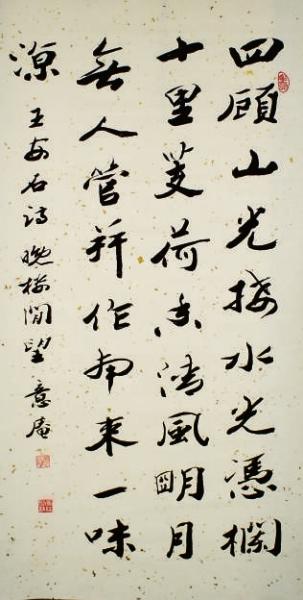 四顧山光接水光憑欄
十里芰荷香清風明月
無人管并作南來一味
涼
王安石詩 晚樓閒望 意庵